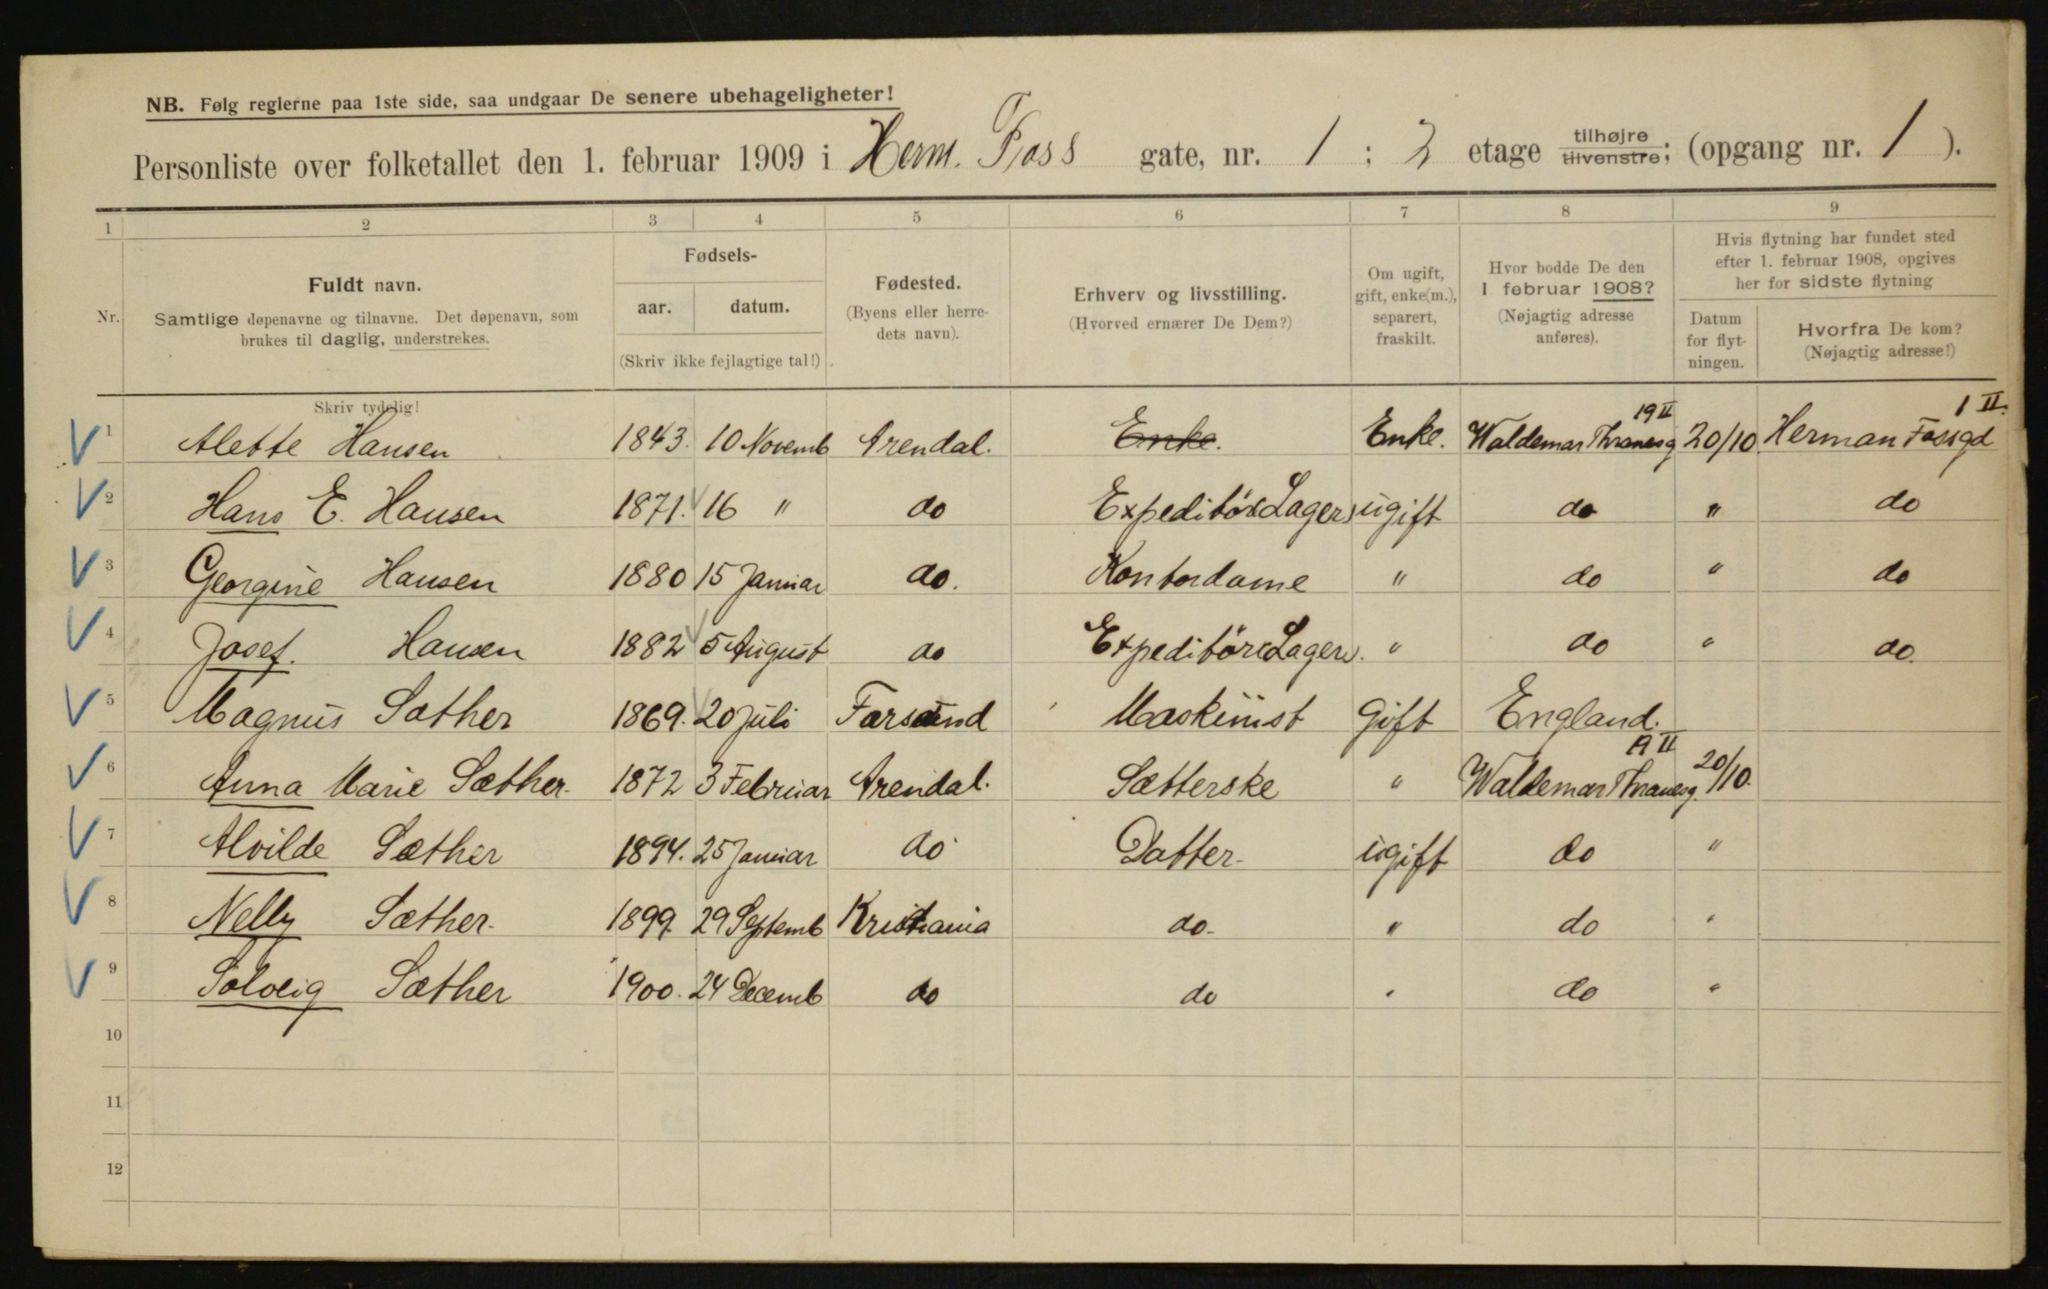 NB. Følg reglerne paa 1ste side, saa undgaar De senere ubehageligheter!
Personliste over folketallet den 1. februar 1909 i Herm. Foss gate, nr. 1 ; 2 etage tilhøjre tilvenstre; (opgang nr. 1 ).
1 2 3 4 5 6 7 8 9
Nr.
Fuldt navn.
Samtlige døpenavne og tilnavne. Det døpenavn, som
brukes til daglig, understrekes.
Skriv tydelig!
Fødsels-
aar. datum.
(Skriv ikke fejlagtige tal!)
Fødested.
(Byens eller herre-
dets navn).
Erhverv og livsstilling.
(Hvorved ernærer De Dem?)
Om ugift,
gift, enke(m.),
separert,
fraskilt.
Hvor bodde De den
1 februar 1908?
(Nøjagtig adresse
anføres).
Hvis flytning har fundet sted
efter 1. februar 1908, opgives
her for sidste flytning
Datum
for flyt-
ningen.
Hvorfra De kom?
(Nøjagtig adresse!)
1 Alette Hansen 1843. 10 Novemb Arendal. Enke. Enke. Waldemar Thranesg 19 II 20/10 Herman Fossgd 1 II.
2 Hans E. Hansen 1871. 16 " do Expeditör Lager ugift do " do
3 Georgine Hansen 1880 15 Januar do. Kontordame " do " do
4 Josef. Hansen 1882 5 August do Expeditör Lager. " do " do.
5 Magnus Sæther 1869. 20 Juli Farsund Maskinist Gift England.
6 Anna Marie Sæther. 1872 3 Februar Arendal. Sætterske " Waldemar Thranesg. 19 II 20/10.
7 Alvilde Sæther 1894. 25 Januar do Datter. ugift do "
8 Nelly Sæther. 1899. 29 Septemb Kristiania do. " do "
9 Solveig Sæther 1900. 24 Decemb do do " do "
10
11
12